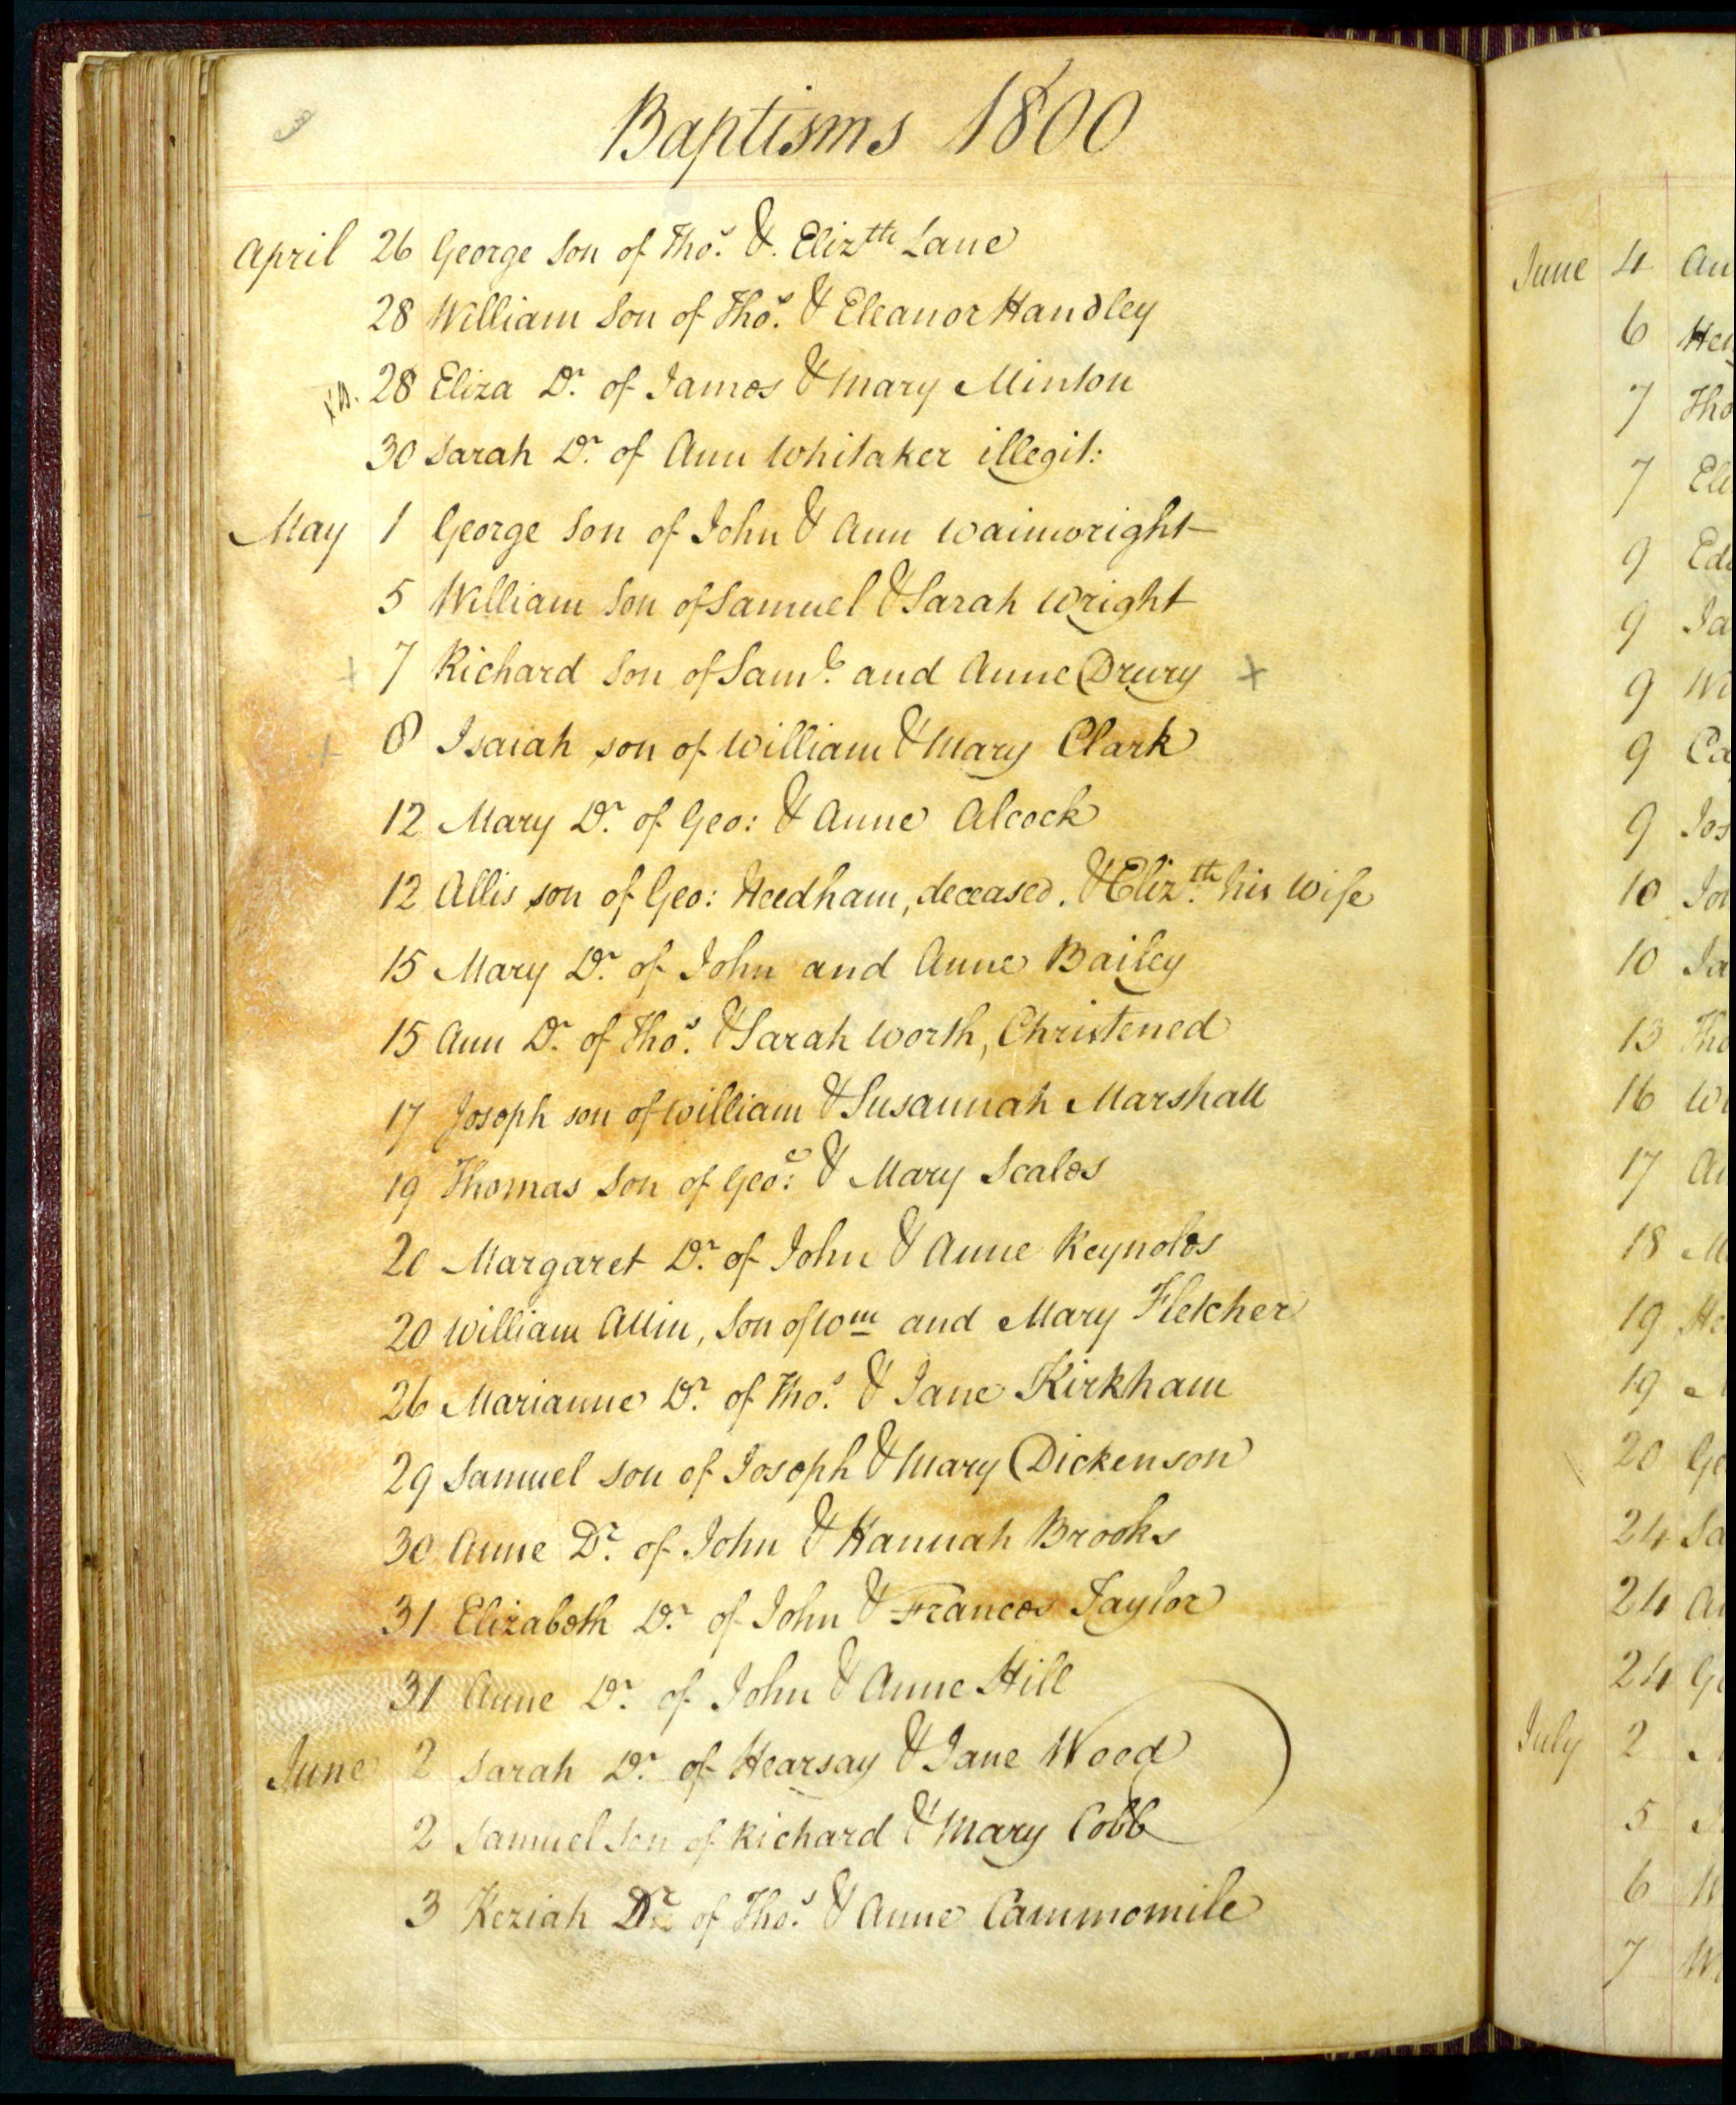 Baptisms 1800
April 26 George Son of Thos. &. Elizth Lane
28 William Son of Thos. & Eleanor Handley
28 Eliza Dr. of James & Mary Minton
30 Sarah Dr. of Ann Whitaker illegit:
May 1 George Son of John & Ann Wainwright
5 William Son of Samuel & Sarah Wright
+ 7 Richard Son of Saml. and Anne Drury +
+ 8 Isaiah son of William & Mary Clark
12 Mary Dr. of Geo: & Anne Alcock
12 Allis son of Geo: Needham, deceased. & Elizth. his Wife
15 Mary Dr. of John and Anne Bailey
15 Ann Dr. of Thos. & Sarah Worth, Christened
17 Joseph son of William & Susannah Marshall
19 Thomas Son of Geoe: & Mary Scales
20 Margaret Dr. of John & Anne Reynolds
20 William Allin, Son of Wm and Mary Fletcher
26 Marianne Dr. of Thos. & Jane Kirkham
29 Samuel son of Joseph & Mary Dickenson
30 Anne Dr. of John & Hannah Brooks
31 Elizabeth Dr. of John & Frances Taylor
31 Anne Dr. of John & Anne Hill
June 2 Sarah Dr. of Hearsay & Jane Wood
2 Samuel Son of Richard & Mary Cobb
3 Keziah Dr. of Thos. & Anne Cammomile
June 4
6
7 Tho
7
9
9
9
9
9
10
10
13
16
17
18
19
19
20
24
24
24
July 2
5
6
7